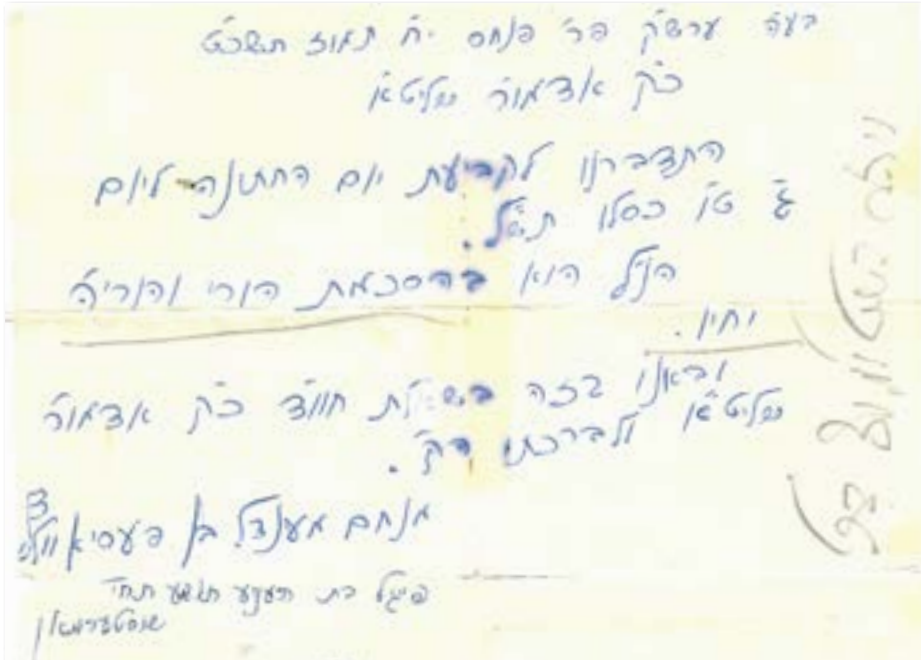 בעה ערשק פר' פנחס י"ח תמוז תשכט
כ"ק אדמור שליטא
התדברנו לקביעת יום החתונה ליום
ג' טו כסלו תש"ל.
הנ"ל הוא בהסכמת הורי והוריה
יחיו.
ובאנו בזה בשאילת חוו"ד כ"ק אדמור
שליט"א ולברכתו הק'.
מנחם מענדל בן פעסיא
פיגל בת חי'
שוסטערמאן